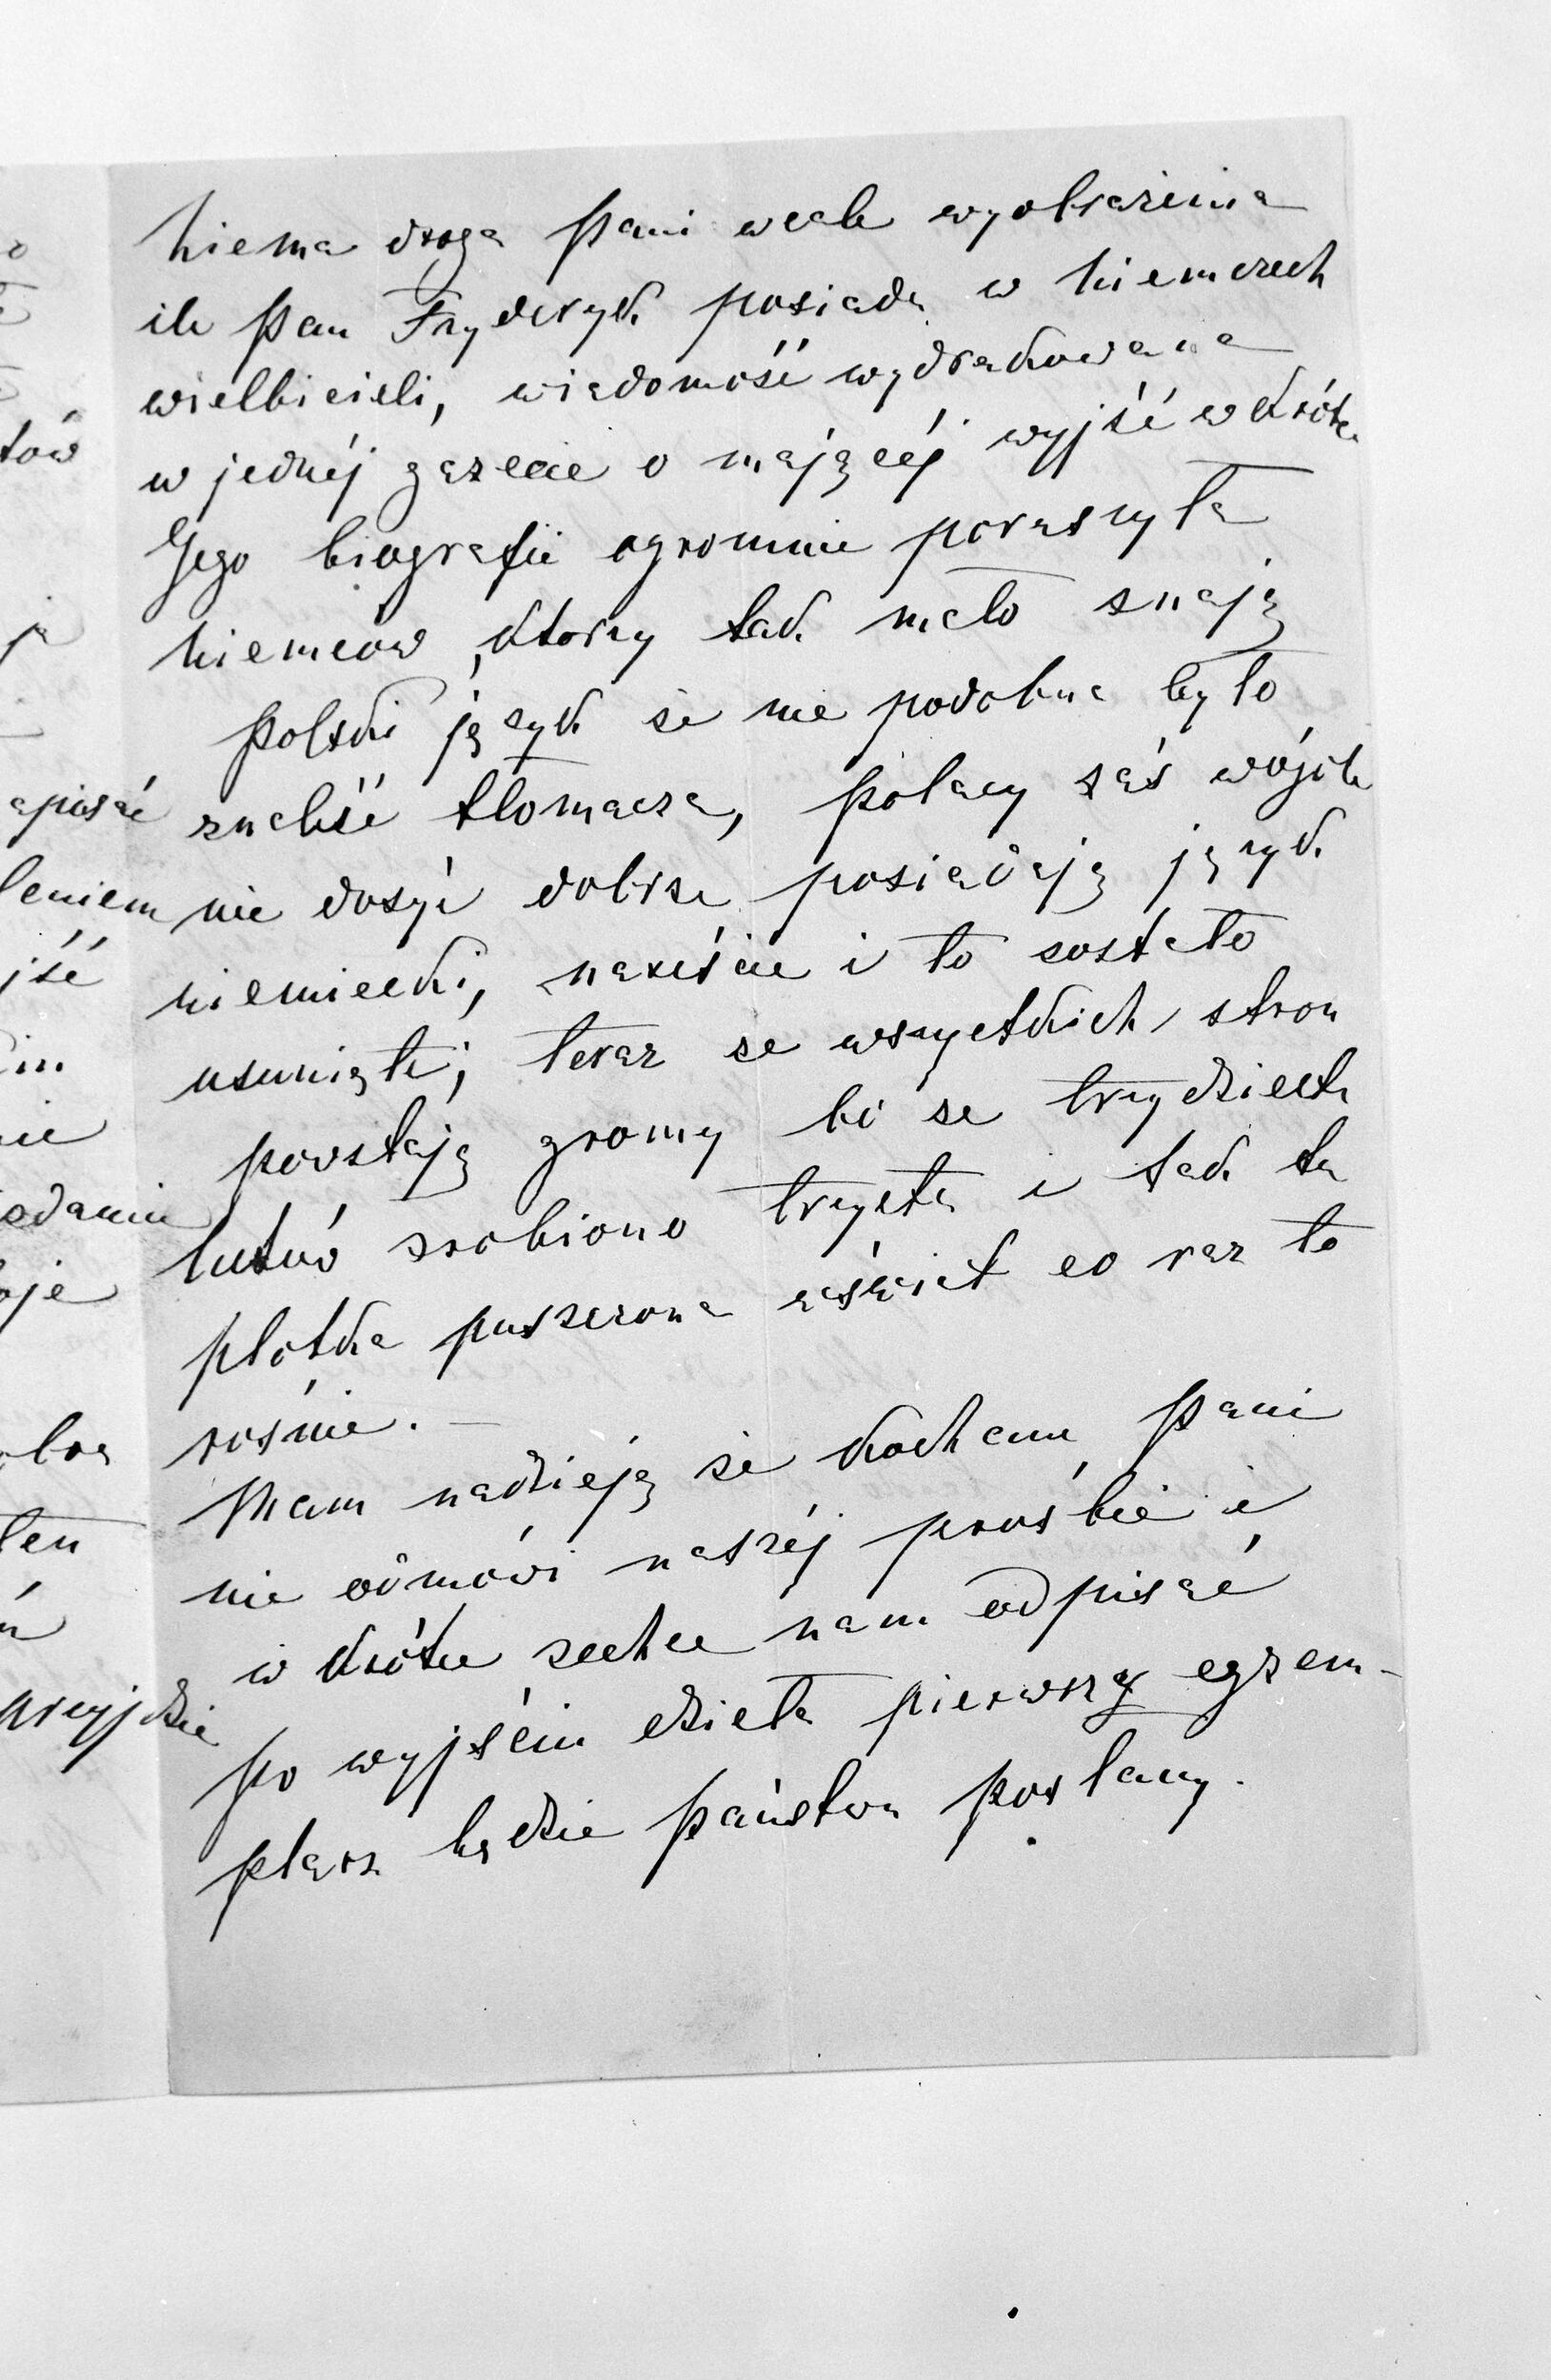 Niema droga Pani wcale wyobrażenia
ile Pan Fryderyk posiada w Niemczech
wielbicieli, wiadomość wydrukowana
w jednéj gazecie o mającéj wyjść wkrótce
Jego biografii ogromnie poruszyła
Niemców, ktorzy tak mało znają
Polski język że nie podobna było
znaleść tłomacza, Polacy zaś wogóle
nie dosyć dobrze posiadają język
niemiecki, nareście i to zostało
usunięte; teraz ze wszystkich stron
powstają gromy bo ze trzydziestu
listów zrobiono trzysta i tak ta
plotka puszczona w świat co raz to
rośnie. —
Mam nadzieję że kochana Pani
nie odmówi naszéj prośbie i
w krótce zechce nam odpisać
po wyjściu dzieła pierwszy egzem-
plarz będzie Państwu posłany.
tów
ja
apisać
leniem
jść
nie
oje
ten